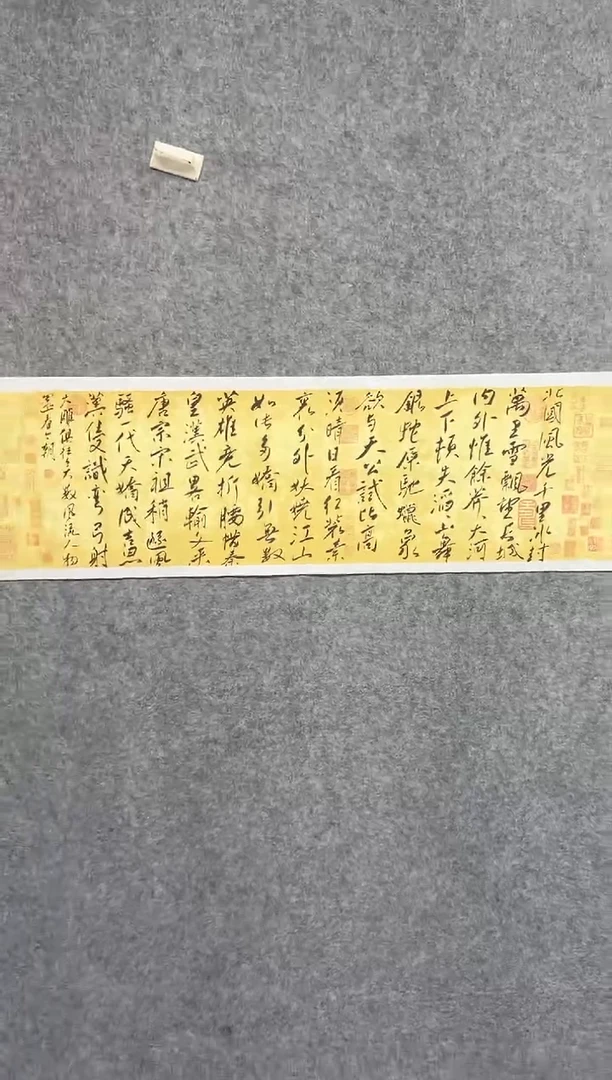 北國風光千里冰封
萬里雪飄望長城
内外惟餘莽々大河
上下頓失滔々山舞
銀蛇原馳蠟象
欲与天公試比高
須晴日看紅裝素
裹分外妖嬈江山
如此多嬌引無數
英雄竞折腰惜秦
皇漢武畧輸文采
唐宗宋祖稍遜風
騷一代天驕成吉思
識彎弓射
大雕俱往矣數風流人物
還看今朝